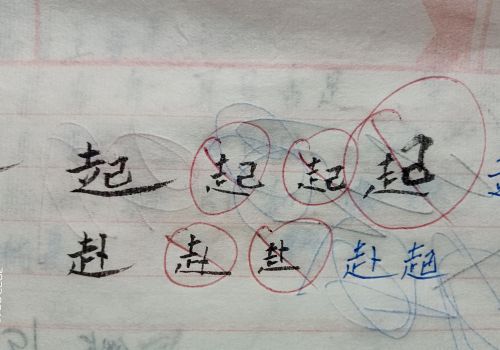 起起起起
赴赴赴赴起